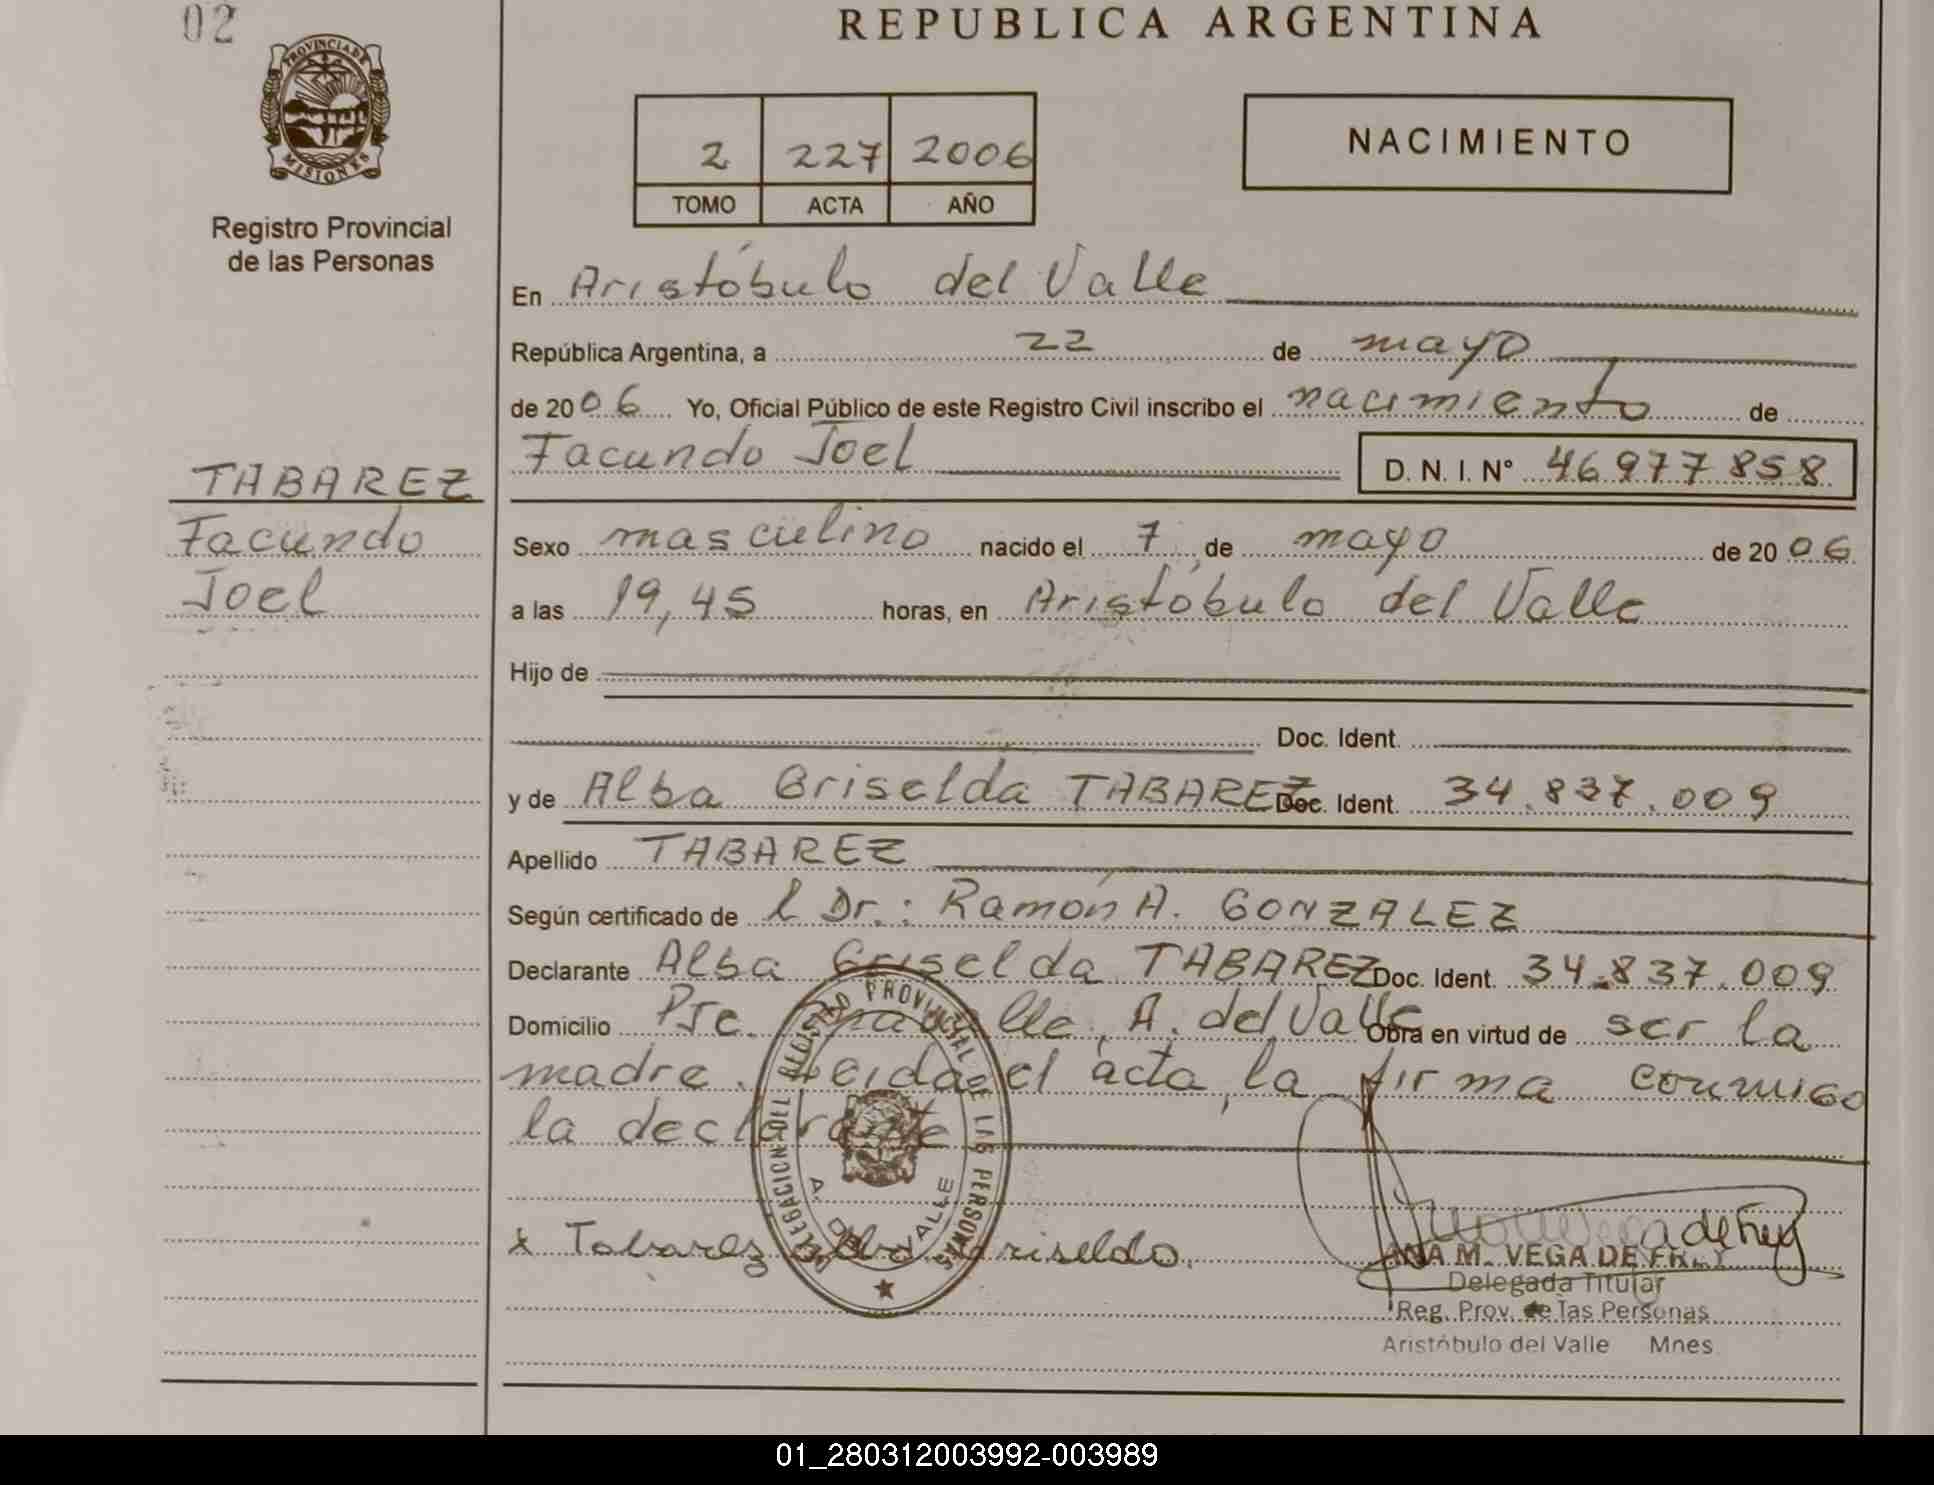 02
REPUBLICA ARGENTINA
PROVINCIA DE MISIONES
Registro Provincial
de las Personas
2 227 2006
TOMO ACTA AÑO
NACIMIENTO
En Aristóbulo del Valle
República Argentina, a 22 de mayo
de 2006 Yo, Oficial Público de este Registro Civil inscribo el nacimiento de
Facundo Joel D. N. I. N° 46977858
TABAREZ
Facundo
Joel
Sexo masculino nacido el 7 de mayo de 2006
a las 19,45 horas, en Aristóbulo del Valle
Hijo de
Doc. Ident.
y de Alba Griselda TABAREZ Doc. Ident. 34.837.009
Apellido TABAREZ
Según certificado de l Dr.: Ramón A. GONZALEZ
Declarante Alba Griselda TABAREZ Doc. Ident. 34.837.009
Domicilio Pje. A. del Valle Obra en virtud de ser la
madre. Leida el acta, la firma conmigo
la declarante
DELEGACION DEL REGISTRO PROVINCIAL DE LAS PERSONAS
A. DEL VALLE
x Tabarez Alba Griselda.
ANA M. VEGA DE FREY
Delegada Titular
Reg. Prov. de las Personas
Aristóbulo del Valle Mnes
01_280312003992-003989